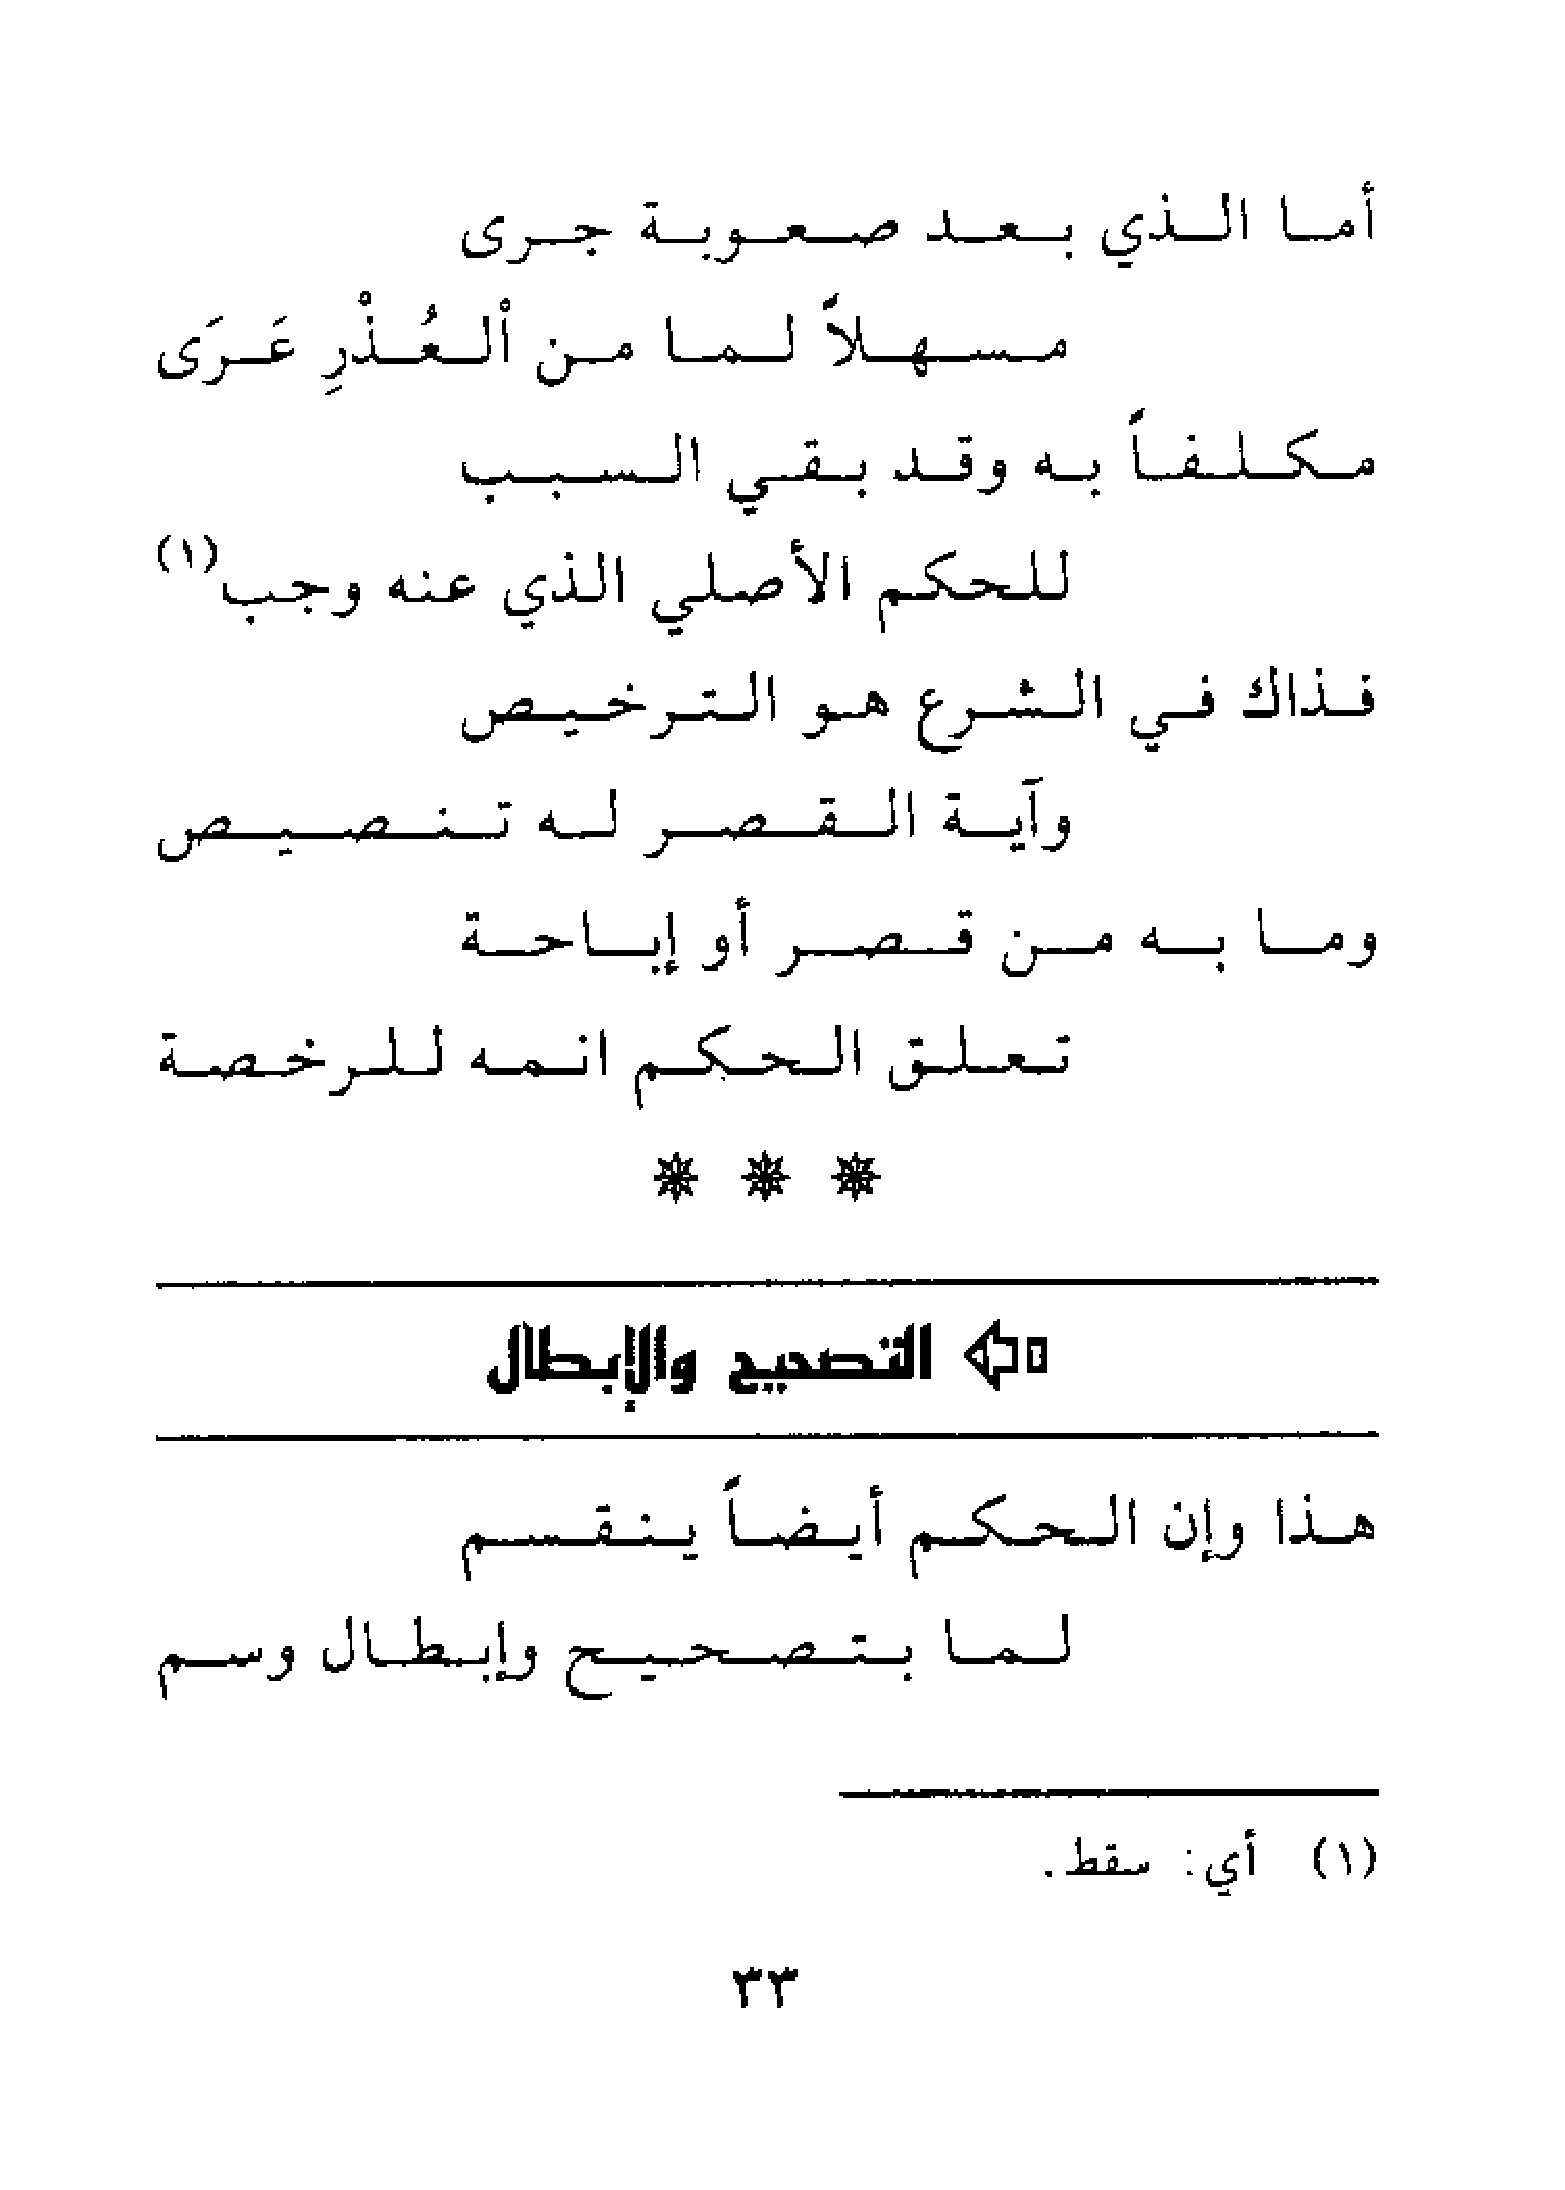 أما الذي بعد صعوبة جرى
مسهلاً لما من ٱلْعُذْرِ عَرَى
مكلفاً به وقد بقي السبب
للحكم الأصلي الذي عنه وجب(١)
فذاك في الشرع هو الترخيص
وآية القصر له تنصيص
وما به من قصر أو إباحة
تعلق الحكم انمه للرخصة
التصحيح والإبطال
هذا وإن الحكم أيضاً ينقسم
لما بتصحيح وإبطال وسم
(١) أي: سقط.
٣٣